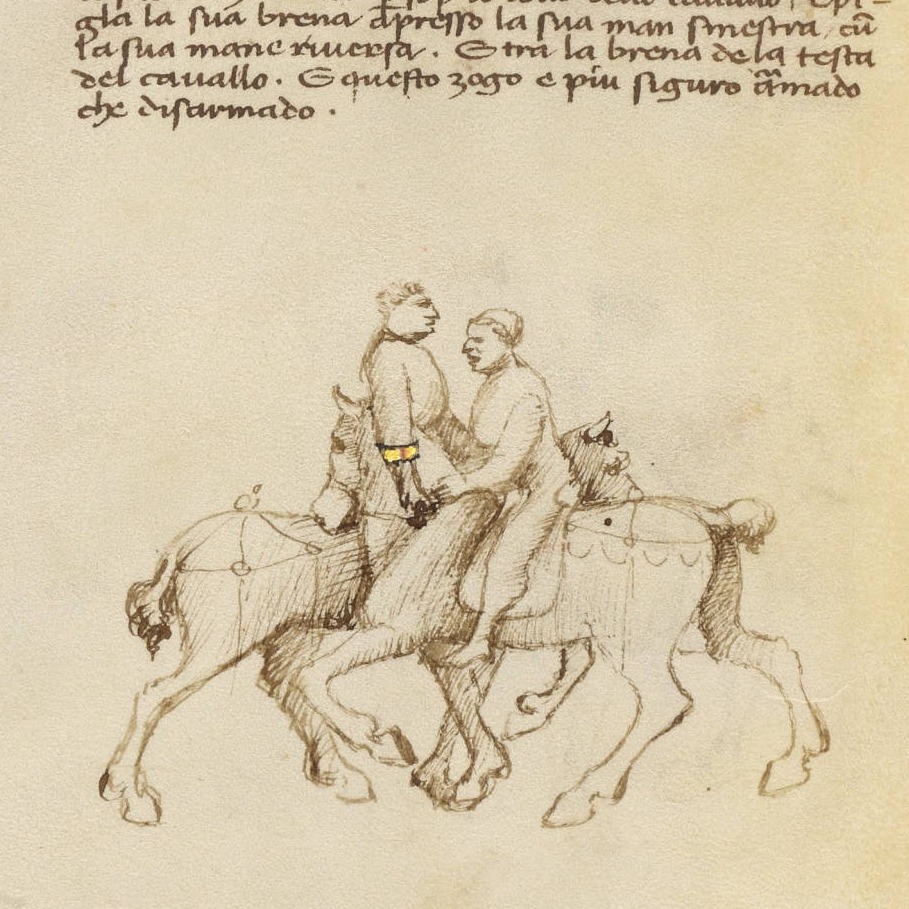 gla la sua brena apresso la sua man sinestra, cũ
la sua mane riversa. E tra la brena de la testa
del cavallo. E questo zogo e piu siguro āmado
che disarmado.